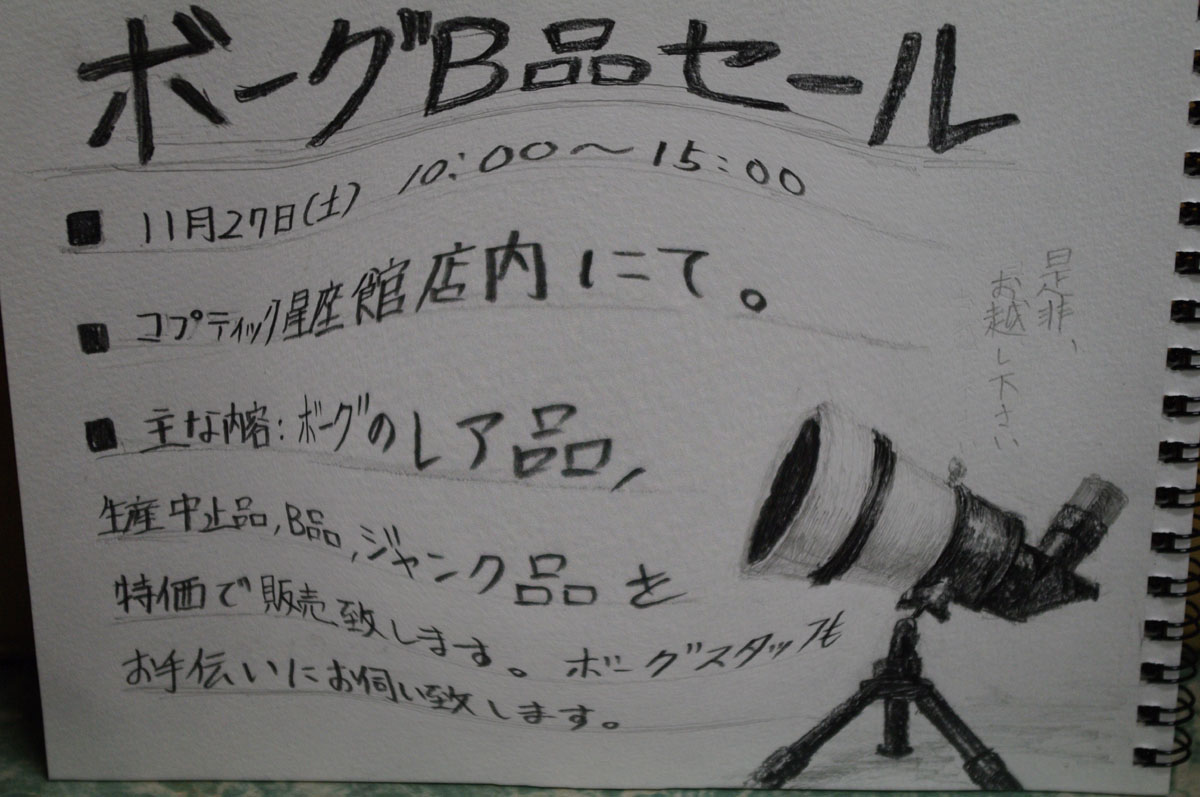 ボーグB品セール
■ 11月27日(土) 10:00〜15:00
■ コプティック星座館店内にて。
■ 主な内容:ボーグのレア品,
生産中止品,B品,ジャンク品を
特価で販売致します。ボーグスタッフも
お手伝いにお伺い致します。
是非、
お越し下さい